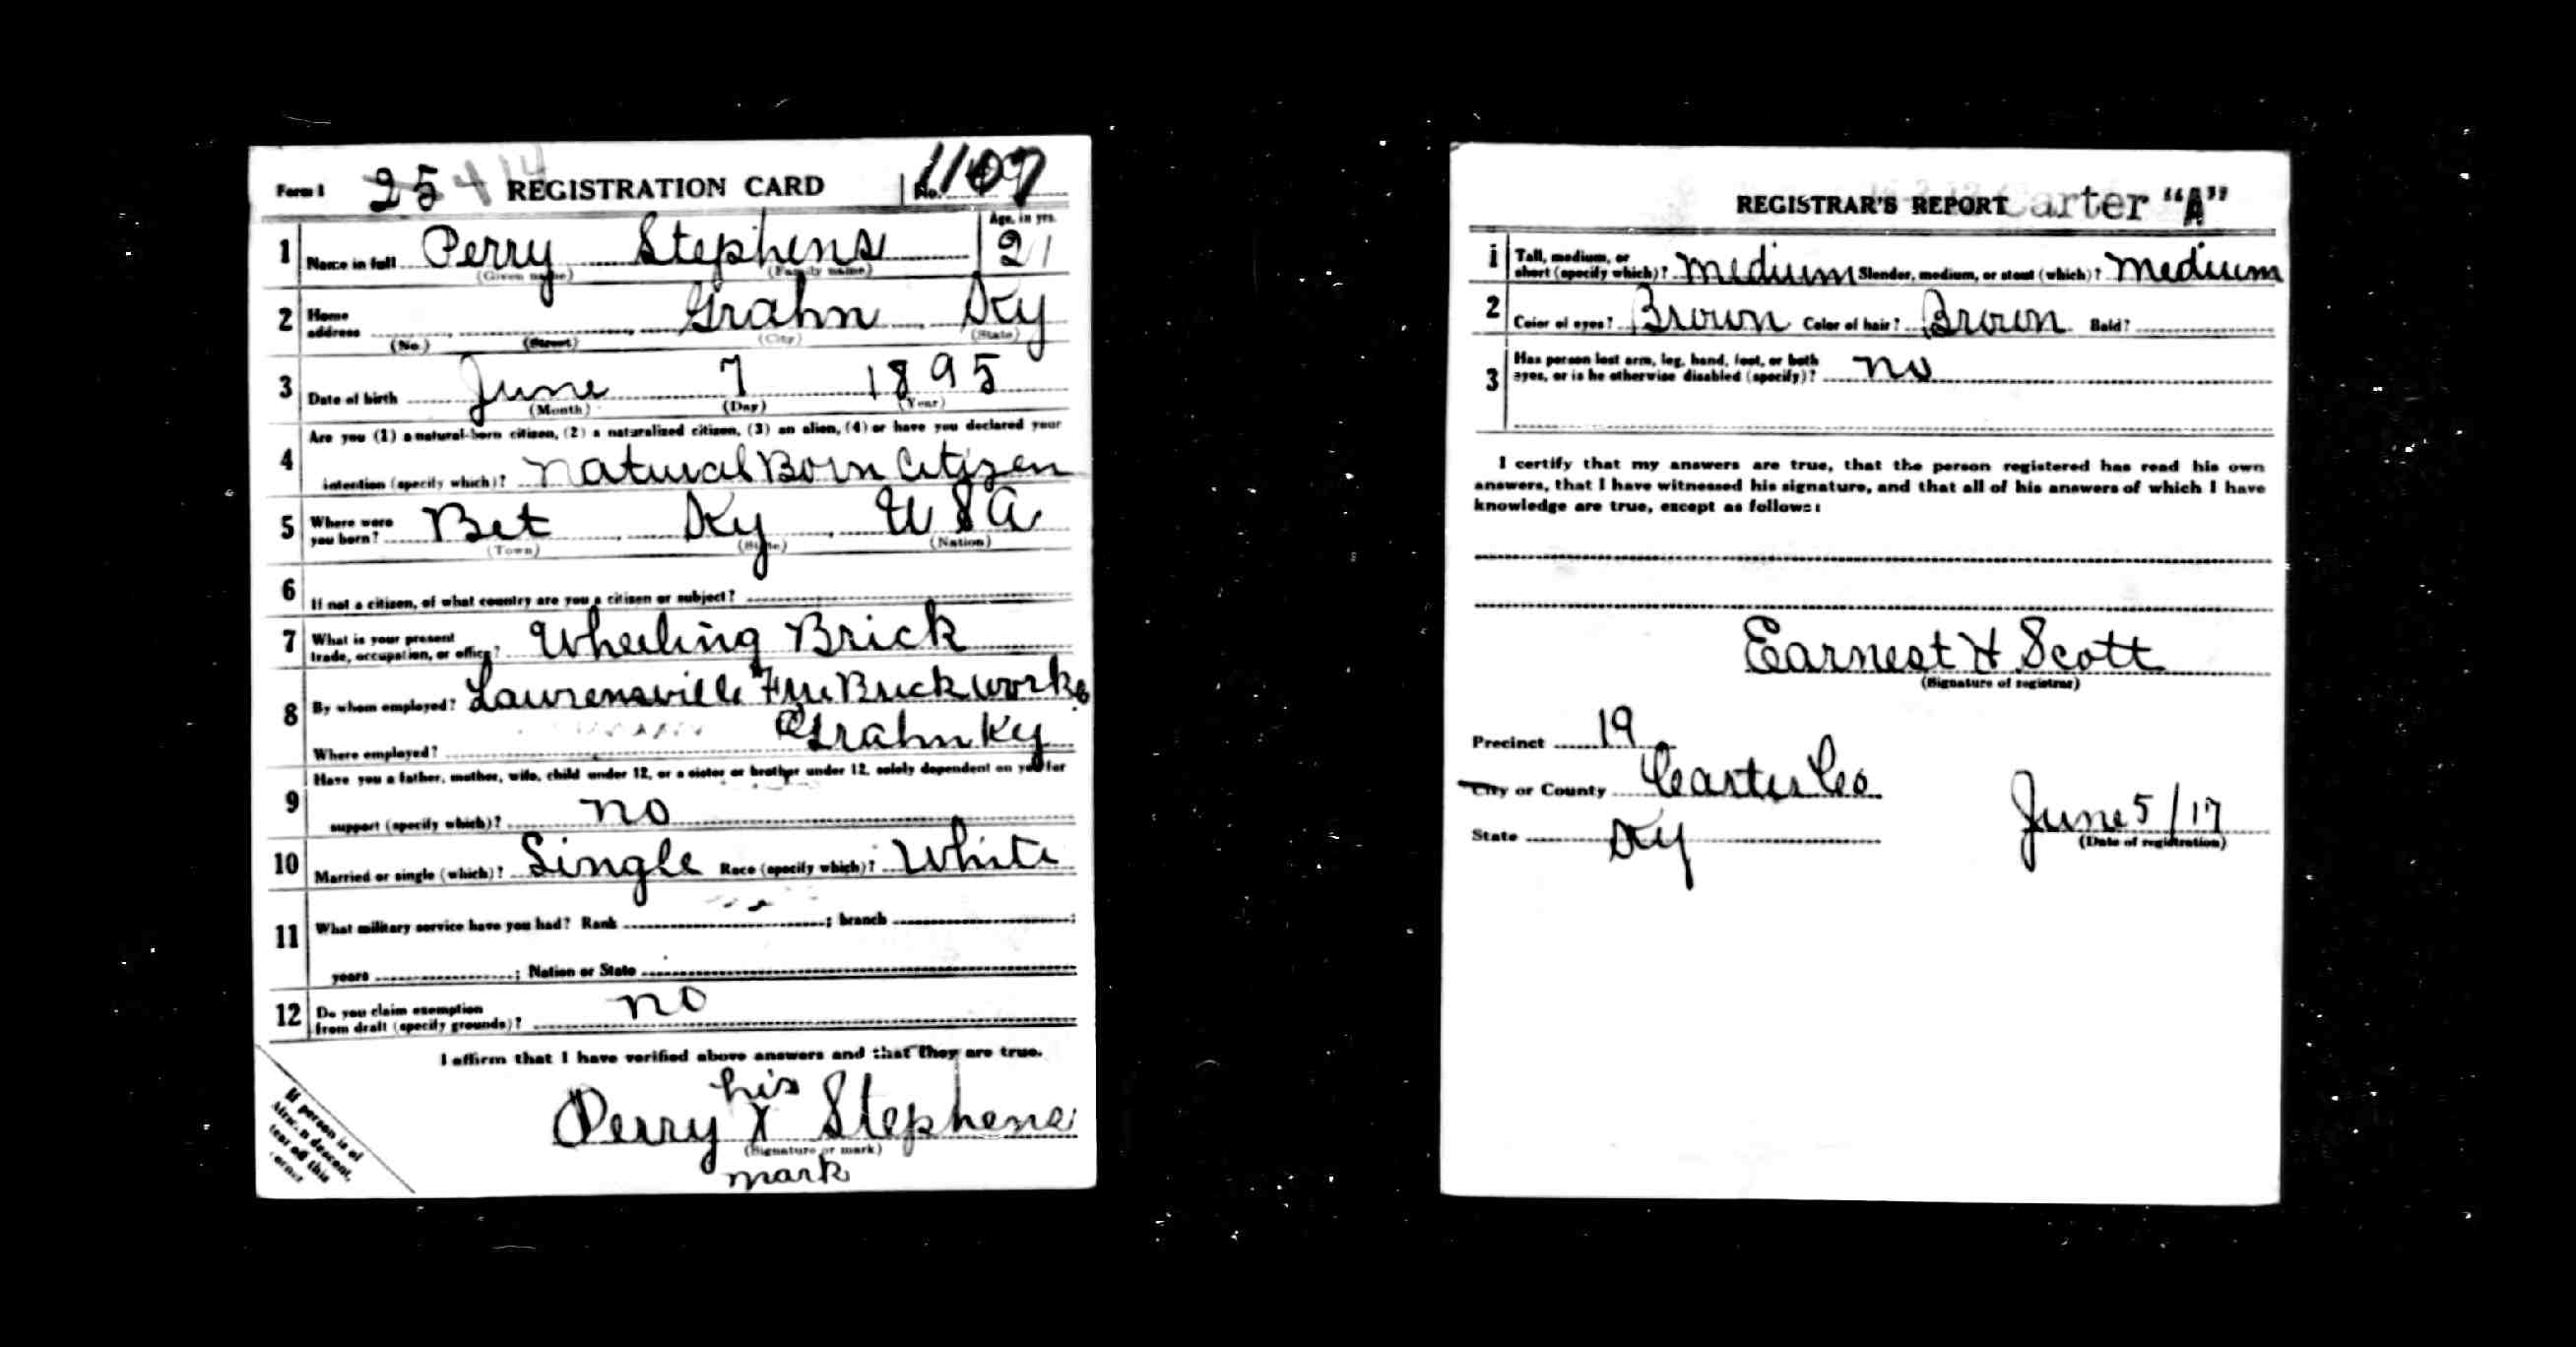 Form 1 25 414 REGISTRATION CARD No. 1107
Age, in yrs.
1 Name in full Perry Stephens 21
(Given name) (Family name)
2 Home address Grahn Ky
(No.) (Street) (City) (State)
3 Date of birth June 7 1895
(Month) (Day) (Year)
4 Are you (1) a natural-born citizen, (2) a naturalized citizen, (3) an alien, (4) or have you declared your
intention (specify which)? Natural Born Citizen
5 Where were you born? Bet Ky USA
(Town) (State) (Nation)
6 If not a citizen, of what country are you a citizen or subject?
7 What is your present trade, occupation, or office? Wheeling Brick
8 By whom employed? Lawrensville Fire Brick Works
Where employed? Grahn Ky
9 Have you a father, mother, wife, child under 12, or a sister or brother under 12, solely dependent on you for
support (specify which)? no
10 Married or single (which)? Single Race (specify which)? White
11 What military service have you had? Rank ; branch ;
years ; Nation or State
12 Do you claim exemption from draft (specify grounds)? no
I affirm that I have verified above answers and that they are true.
his
Perry X Stephens
(Signature or mark)
mark
If person is of
African descent,
tear off this
corner
REGISTRAR'S REPORT Carter "A"
1 Tall, medium, or short (specify which)? medium Slender, medium, or stout (which)? medium
2 Color of eyes? Brown Color of hair? Brown Bald?
3 Has person lost arm, leg, hand, foot, or both eyes, or is he otherwise disabled (specify)? no
I certify that my answers are true, that the person registered has read his own
answers, that I have witnessed his signature, and that all of his answers of which I have
knowledge are true, except as follows:
Earnest H Scott
(Signature of registrar)
Precinct 19
City or County Carter Co
State Ky June 5/17
(Date of registration)